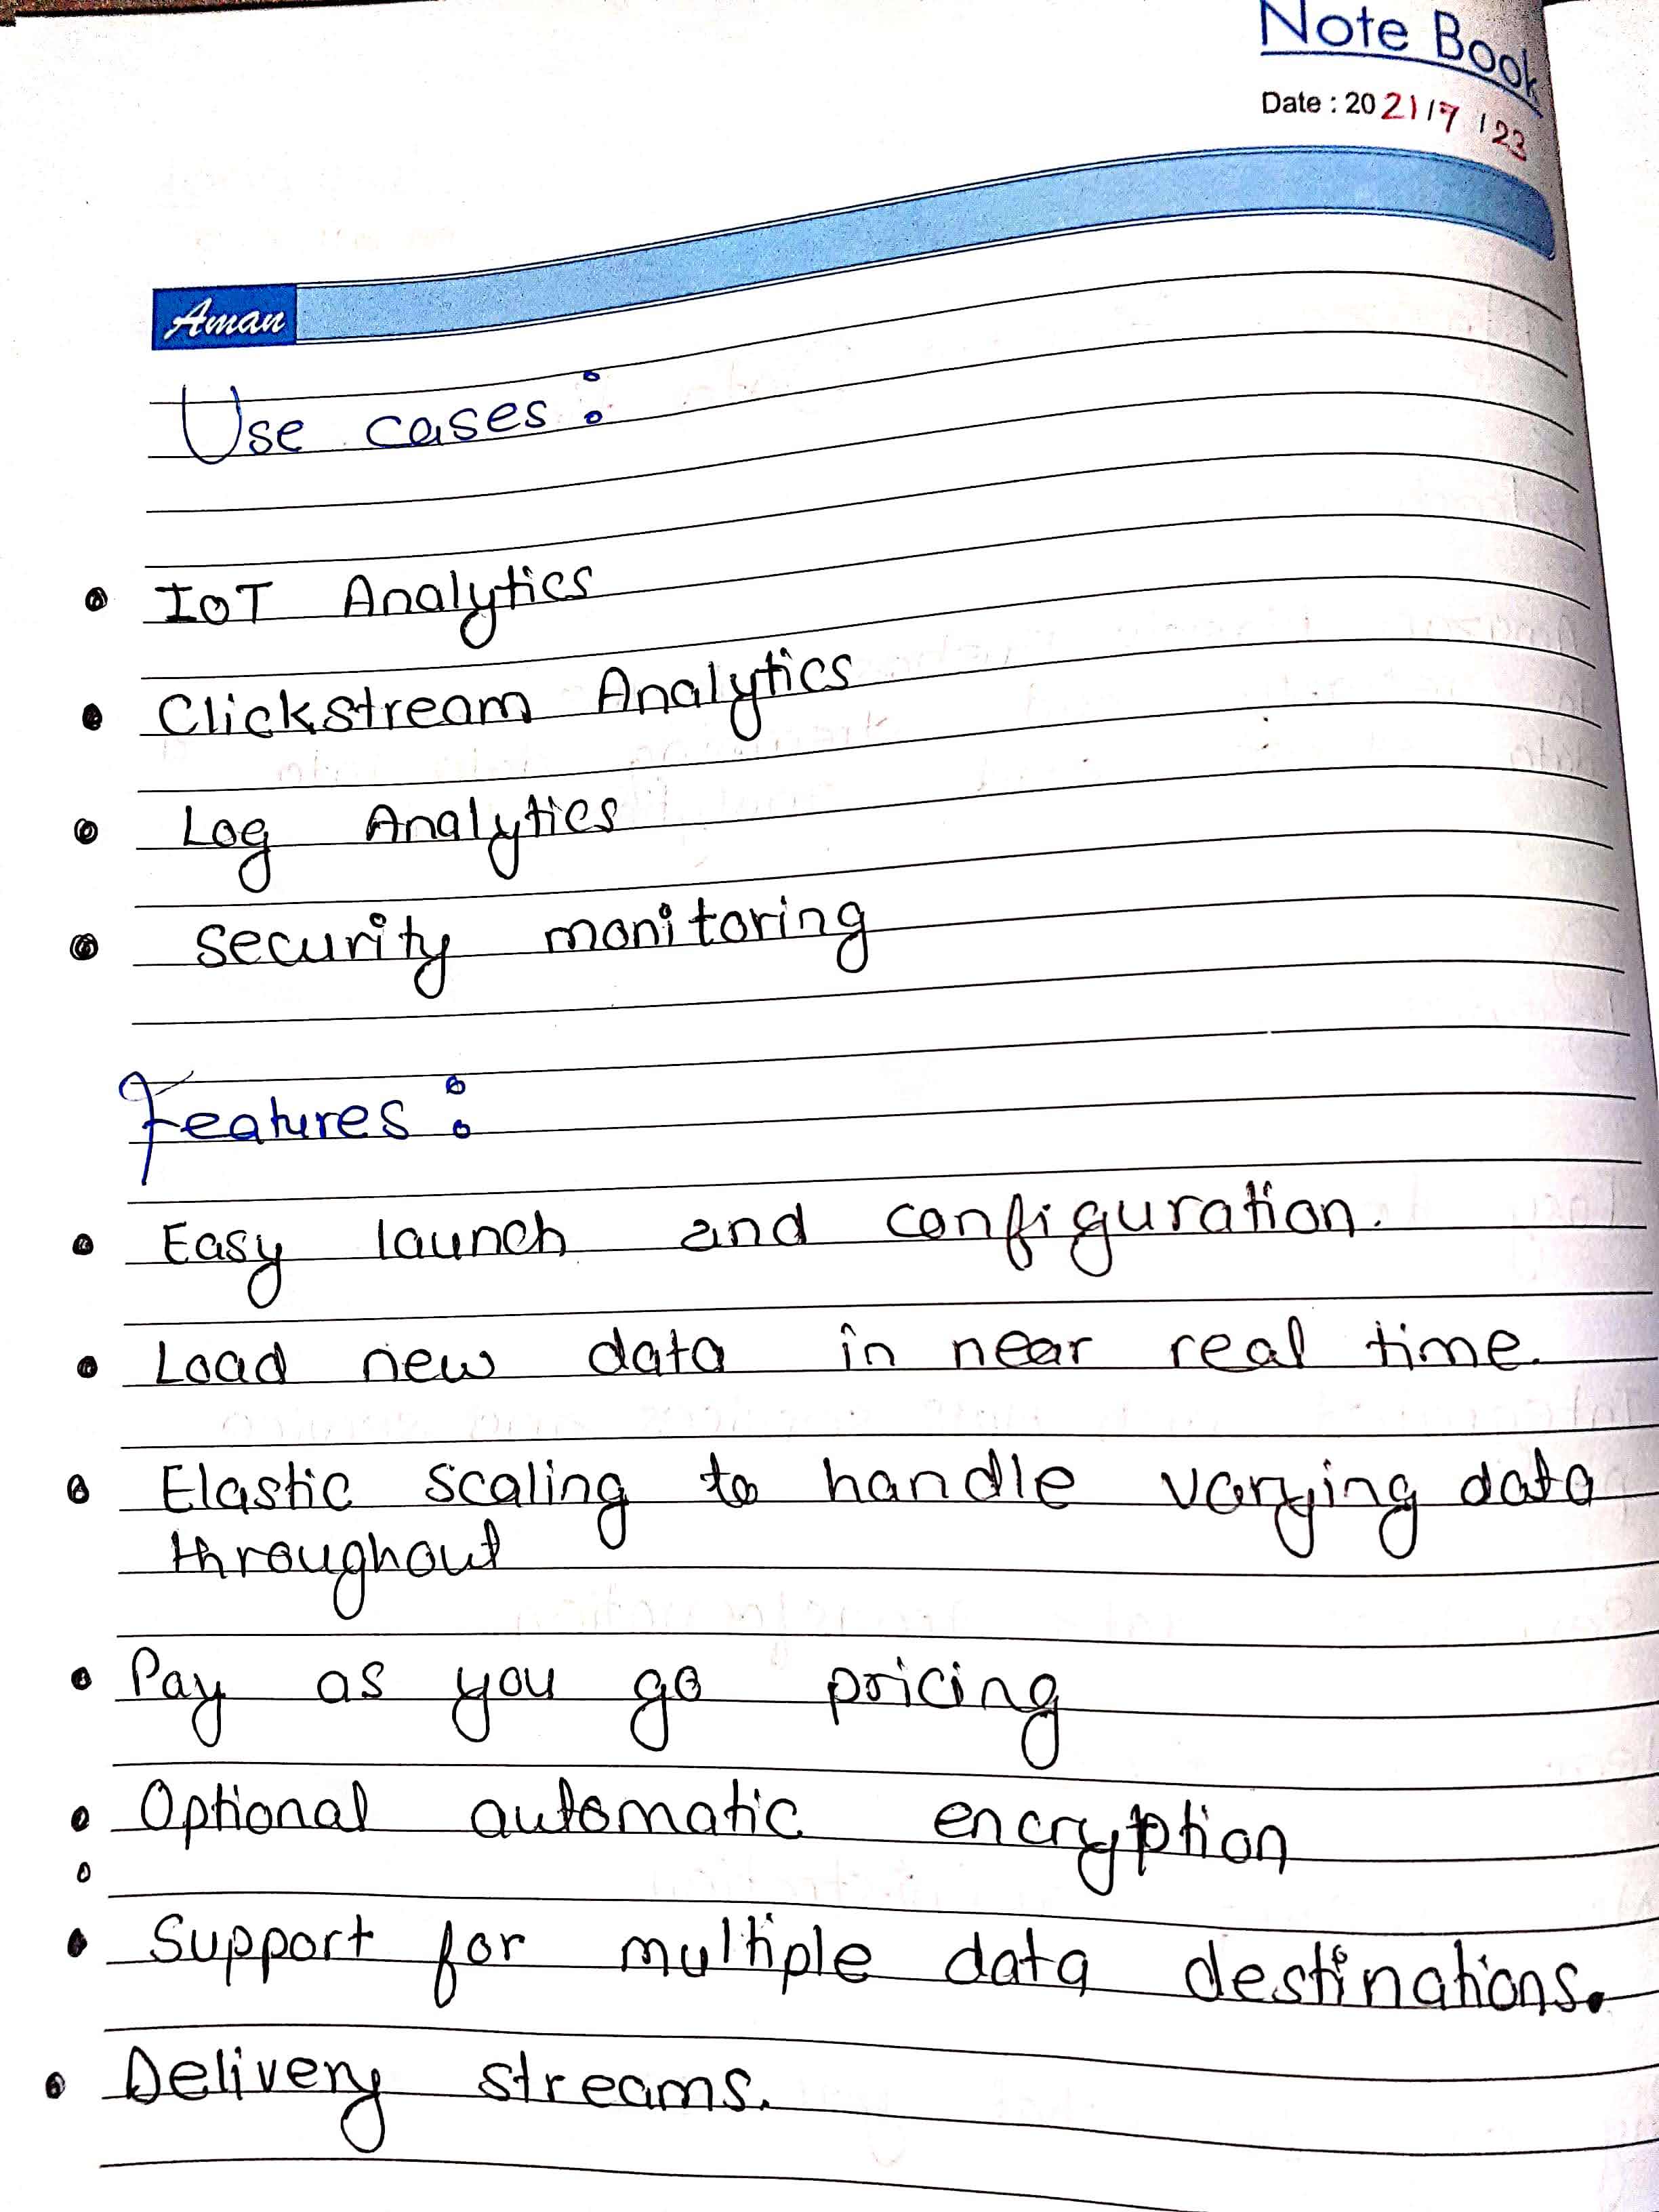 Note Book
Date : 2021/7/23
Aman
Use cases:
• IoT Analytics
• Clickstream Analytics
• Log Analytics
• security monitoring
Features:
• Easy launch and configuration.
• Load new data in near real time.
• Elastic scaling to handle varying data
throughout
• Pay as you go pricing
• Optional automatic encryption
• Support for multiple data destinations.
• Delivery streams.